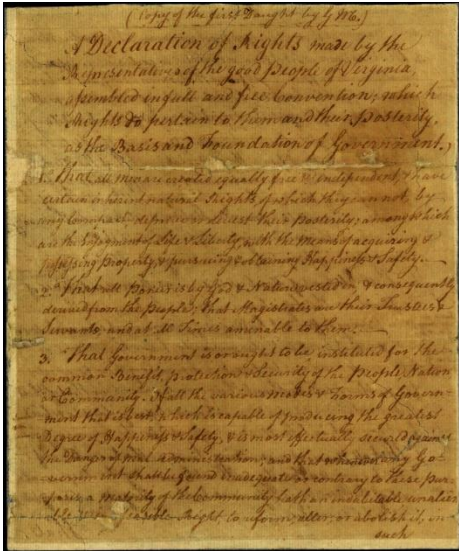 (Copy of the first Daught by G M.)
A Declaration of Rights made by the
Representatives of the good People of Virginia,
assembled in full and free Convention; which
Rights do pertain to them and their Posterity,
as the Basis and Foundation of Government,
1. That all men are created equally free & independent, & have
certain inherent natural Rights, of which they can not, by
any Compact, deprive or divest their Posterity; among which
are the Enjoyment of Life & Liberty, with the Means of acquiring &
possessing Property, & pursueing & obtaining Happiness & Safety.
2. That all Power is by God & Nature vested in, & consequently
derived from the People; that Magistrates are their Trustees &
Servants, and at all Times amenable to them.
3. That Government is or ought to be instituted for the
common Benefit, protection & Security of the People, Nation
or Community. Of all the various modes & Forms of Govern-
ment that is best, which is capable of produceing the greatest
Degree of Happiness & Safety, & is most effectually secured against
the Danger of mal-administration; and that whenever any Go-
vernment shall be found inadequate or contrary to these pur-
poses, a majority of the Community hath an indubitable unalien-
able & indefeasible Right to reform, alter, or abolish it, in
such